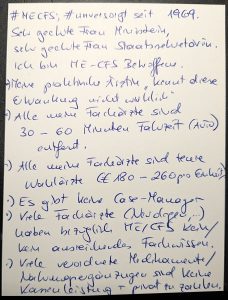 #MECFS, #unversorgt seit 1969.
Sehr geehrte Frau Ministerin,
sehr geehrte Frau Staatssekretärin.
Ich bin ME-CFS Betroffene.
Meine praktische Ärztin "kennt diese
Erkrankung nicht wirklich"
·) Alle meine Fachärzte sind
30 - 60 Minuten Fahrzeit (Auto)
entfernt.
·) Alle meine Fachärzte sind teure
Wahlärzte (€ 180 - 260 pro Einheit)
·) Es gibt keine Case-Manager
·) Viele Fachärzte (Neurologen,..)
haben bezüglich ME/CFS kein/
kein ausreichendes Fachwissen.
·) Viele verordnete Medikamente/
Nahrungsergänzungen sind keine
Kassenleistung + privat zu zahlen.